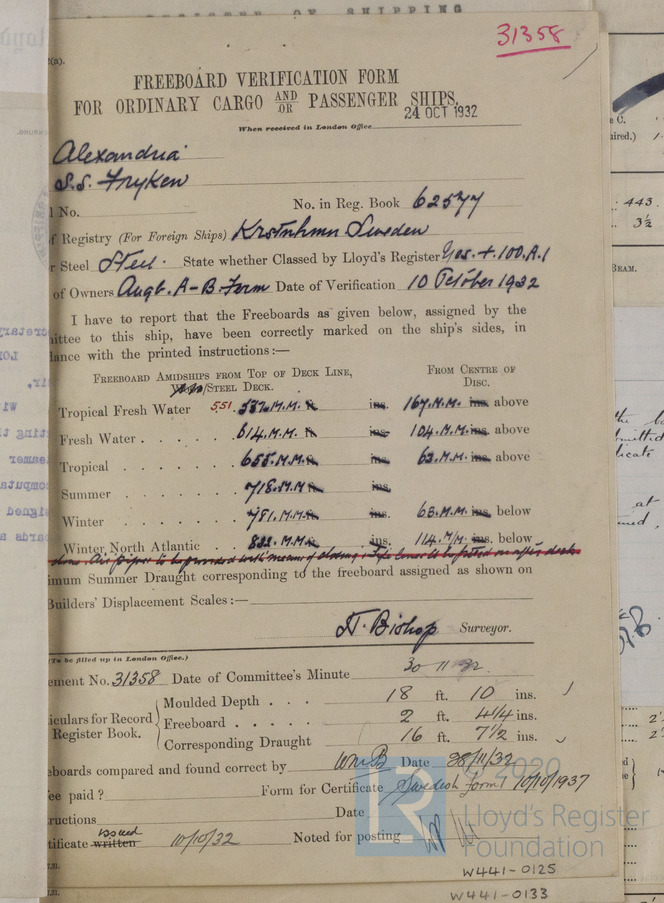 REGISTER OF SHIPPING
31358
(a).
FREEBOARD VERIFICATION FORM
FOR ORDINARY CARGO AND/OR PASSENGER SHIPS.
24 OCT 1932
When received in London Office
Alexandria
S.S. Fryken
No. No. in Reg. Book 62577
Registry (For Foreign Ships) Krstnhmn Sweden
r Steel Steel. State whether Classed by Lloyd's Register Yes. + 100.A.1
of Owners Angb. A-B. Ferm Date of Verification 10 October 1932
I have to report that the Freeboards as given below, assigned by the
mittee to this ship, have been correctly marked on the ship's sides, in
dance with the printed instructions:—
FREEBOARD AMIDSHIPS FROM TOP OF DECK LINE, FROM CENTRE OF
/STEEL DECK. DISC.
Tropical Fresh Water 551. M.M. ins. 167.M.M. ins. above
Fresh Water . . . . 614.M.M. ins. 104.M.M. ins. above
Tropical . . . . . . 655.M.M. ins. 63.M.M. ins. above
Summer . . . . . . 718.M.M ins.
Winter . . . . . . 781.M.M. ins. 63.M.M. ins. below
Winter, North Atlantic . 832.M.M. ins. 114.M/M. ins. below
Air pipes to be provided with means of closing. Life lines to be fitted on after deck
imum Summer Draught corresponding to the freeboard assigned as shown on
Builders' Displacement Scales:—
Bishop Surveyor.
(To be filled up in London Office.)
ement No. 31358 Date of Committee's Minute 30 11 32
iculars for Record Register Book.
Moulded Depth . . . 18 ft. 10 ins.
Freeboard . . . . . 2 ft. 4 1/4 ins.
Corresponding Draught 16 ft. 7 1/2 ins.
eboards compared and found correct by WmB Date 28/11/32
ee paid ? Form for Certificate Swedish form 10/10/1937
ructions Date
tificate written issued 10/10/32 Noted for posting
© 2020
LR Lloyd's Register
Foundation
W441-0125
W441-0133
443.
3½
BEAM.